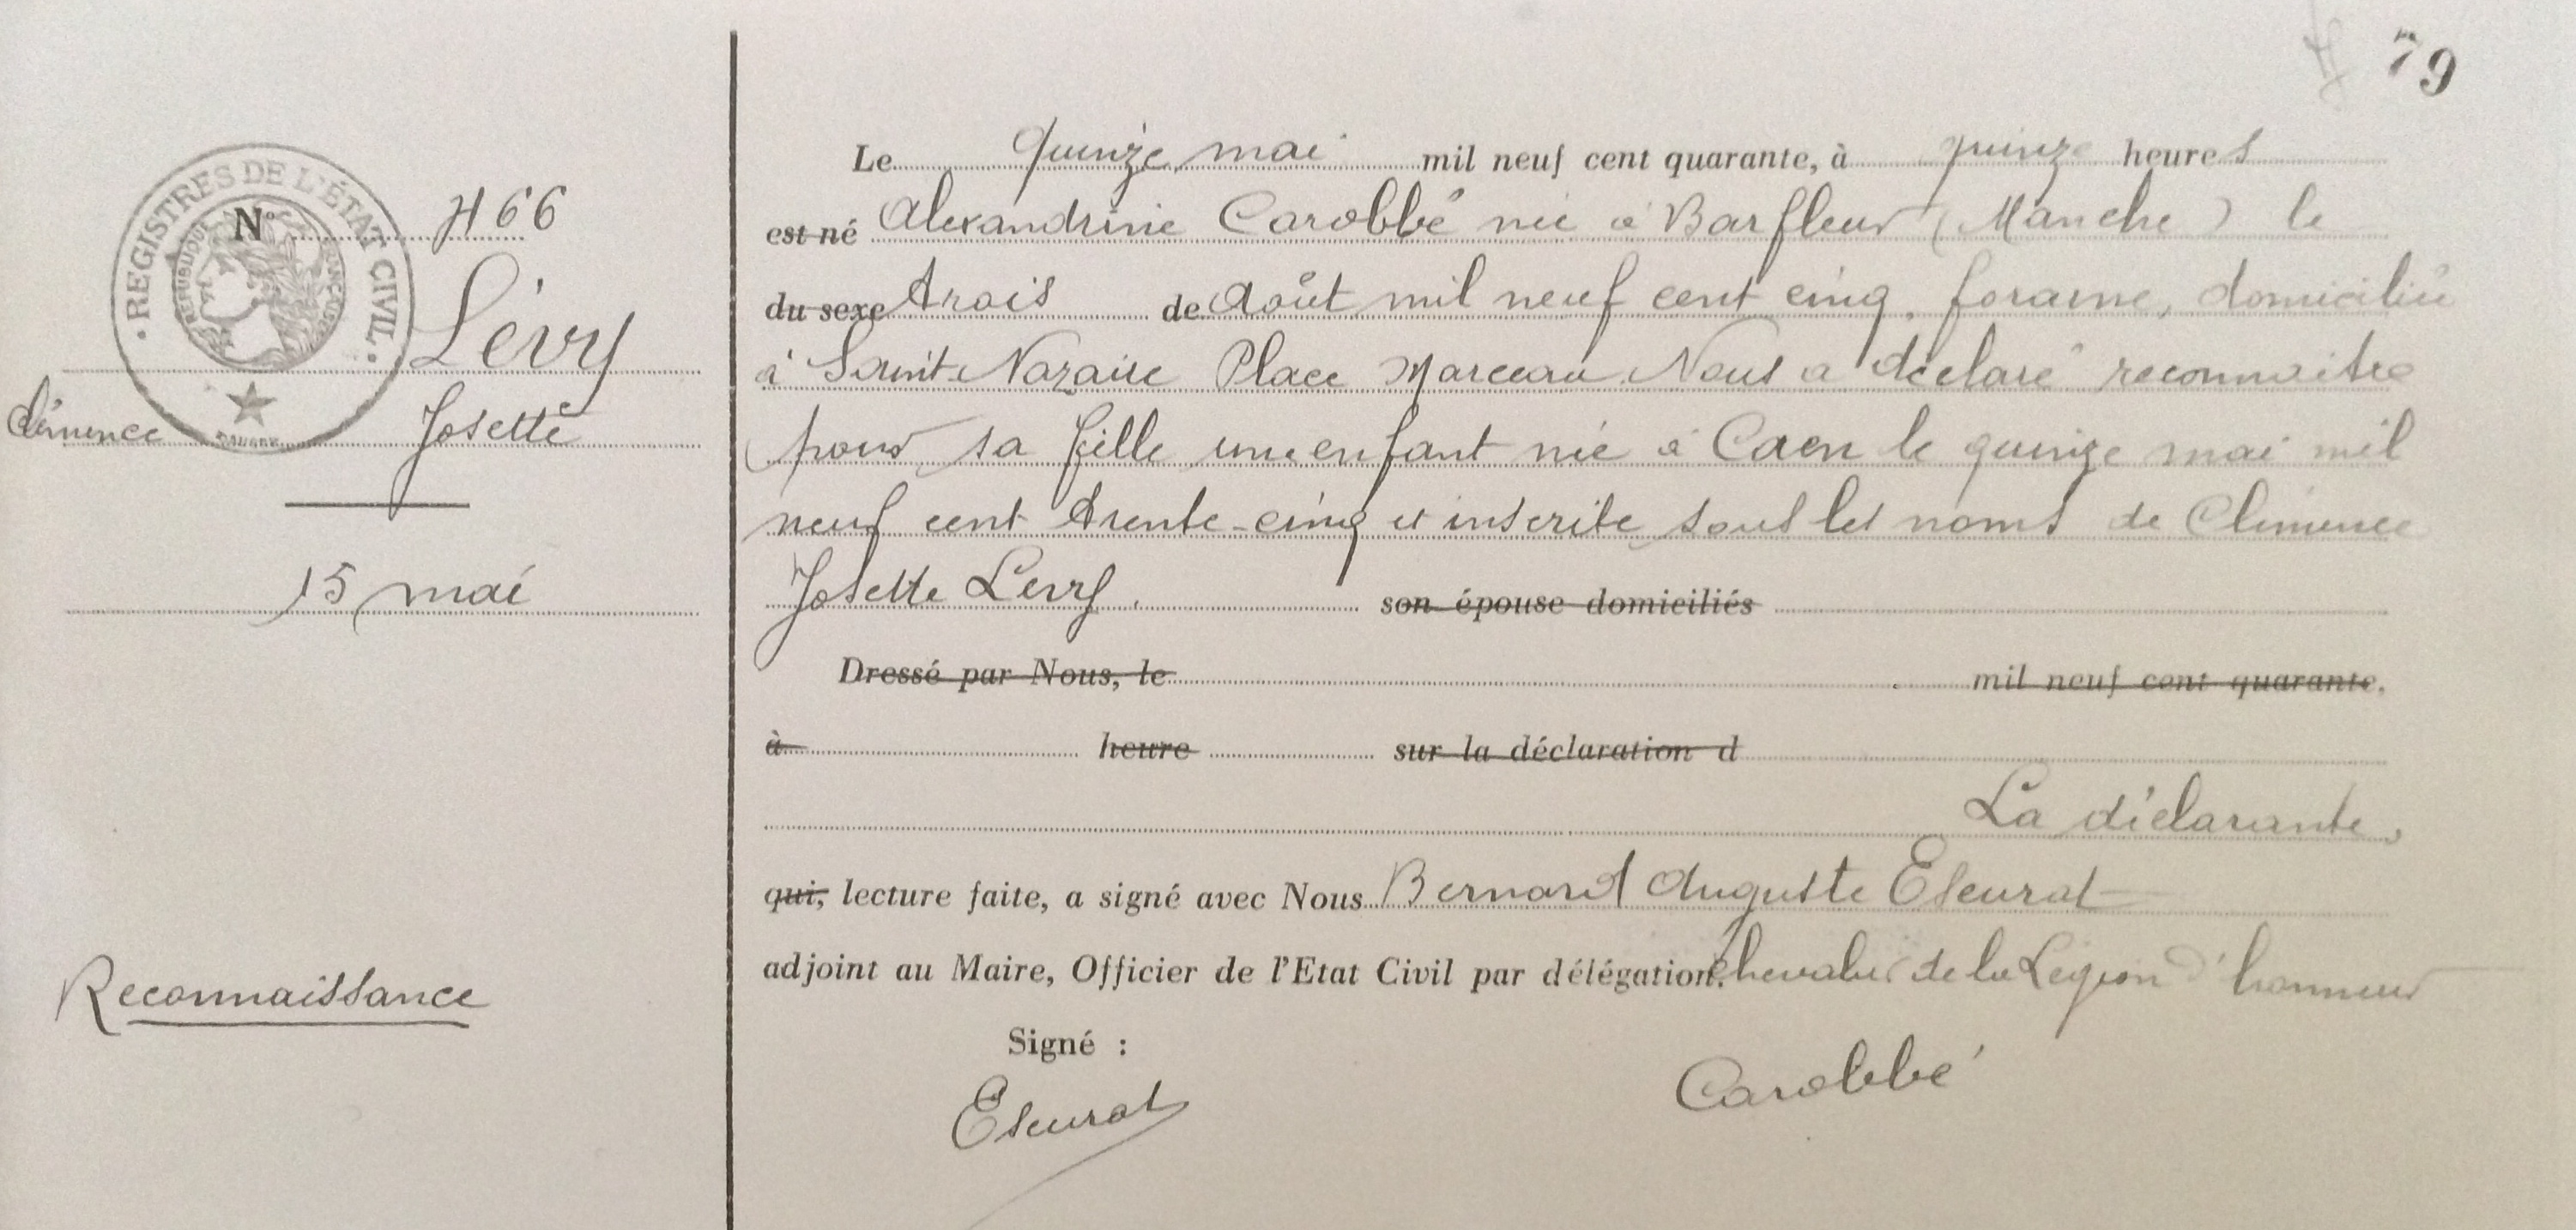 79
REGISTRES DE L'ÉTAT CIVIL
RÉPUBLIQUE FRANÇAISE
N° 466
Lévy
Clémence Josette
15 mai
Reconnaissance
Le quinze mai mil neuf cent quarante, à quinze heures
est né Alexandrine Carobbé née à Barfleur (Manche) le
du sexe trois de Août mil neuf cent cinq, foraine, domiciliée
à Saint-Nazaire Place Marceau. Nous a déclaré reconnaitre
pour sa fille une enfant née à Caen le quinze mai mil
neuf cent trente-cinq et inscrite sous les noms de Clémence
Josette Levy. son épouse domiciliés
Dressé par Nous, le mil neuf cent quarante,
à heure sur la déclaration d
La déclarante,
qui, lecture faite, a signé avec Nous Bernard Auguste Eseurat
adjoint au Maire, Officier de l'Etat Civil par délégation. Chevalier de la Légion d'honneur
Signé :
Eseurat
Carobbé